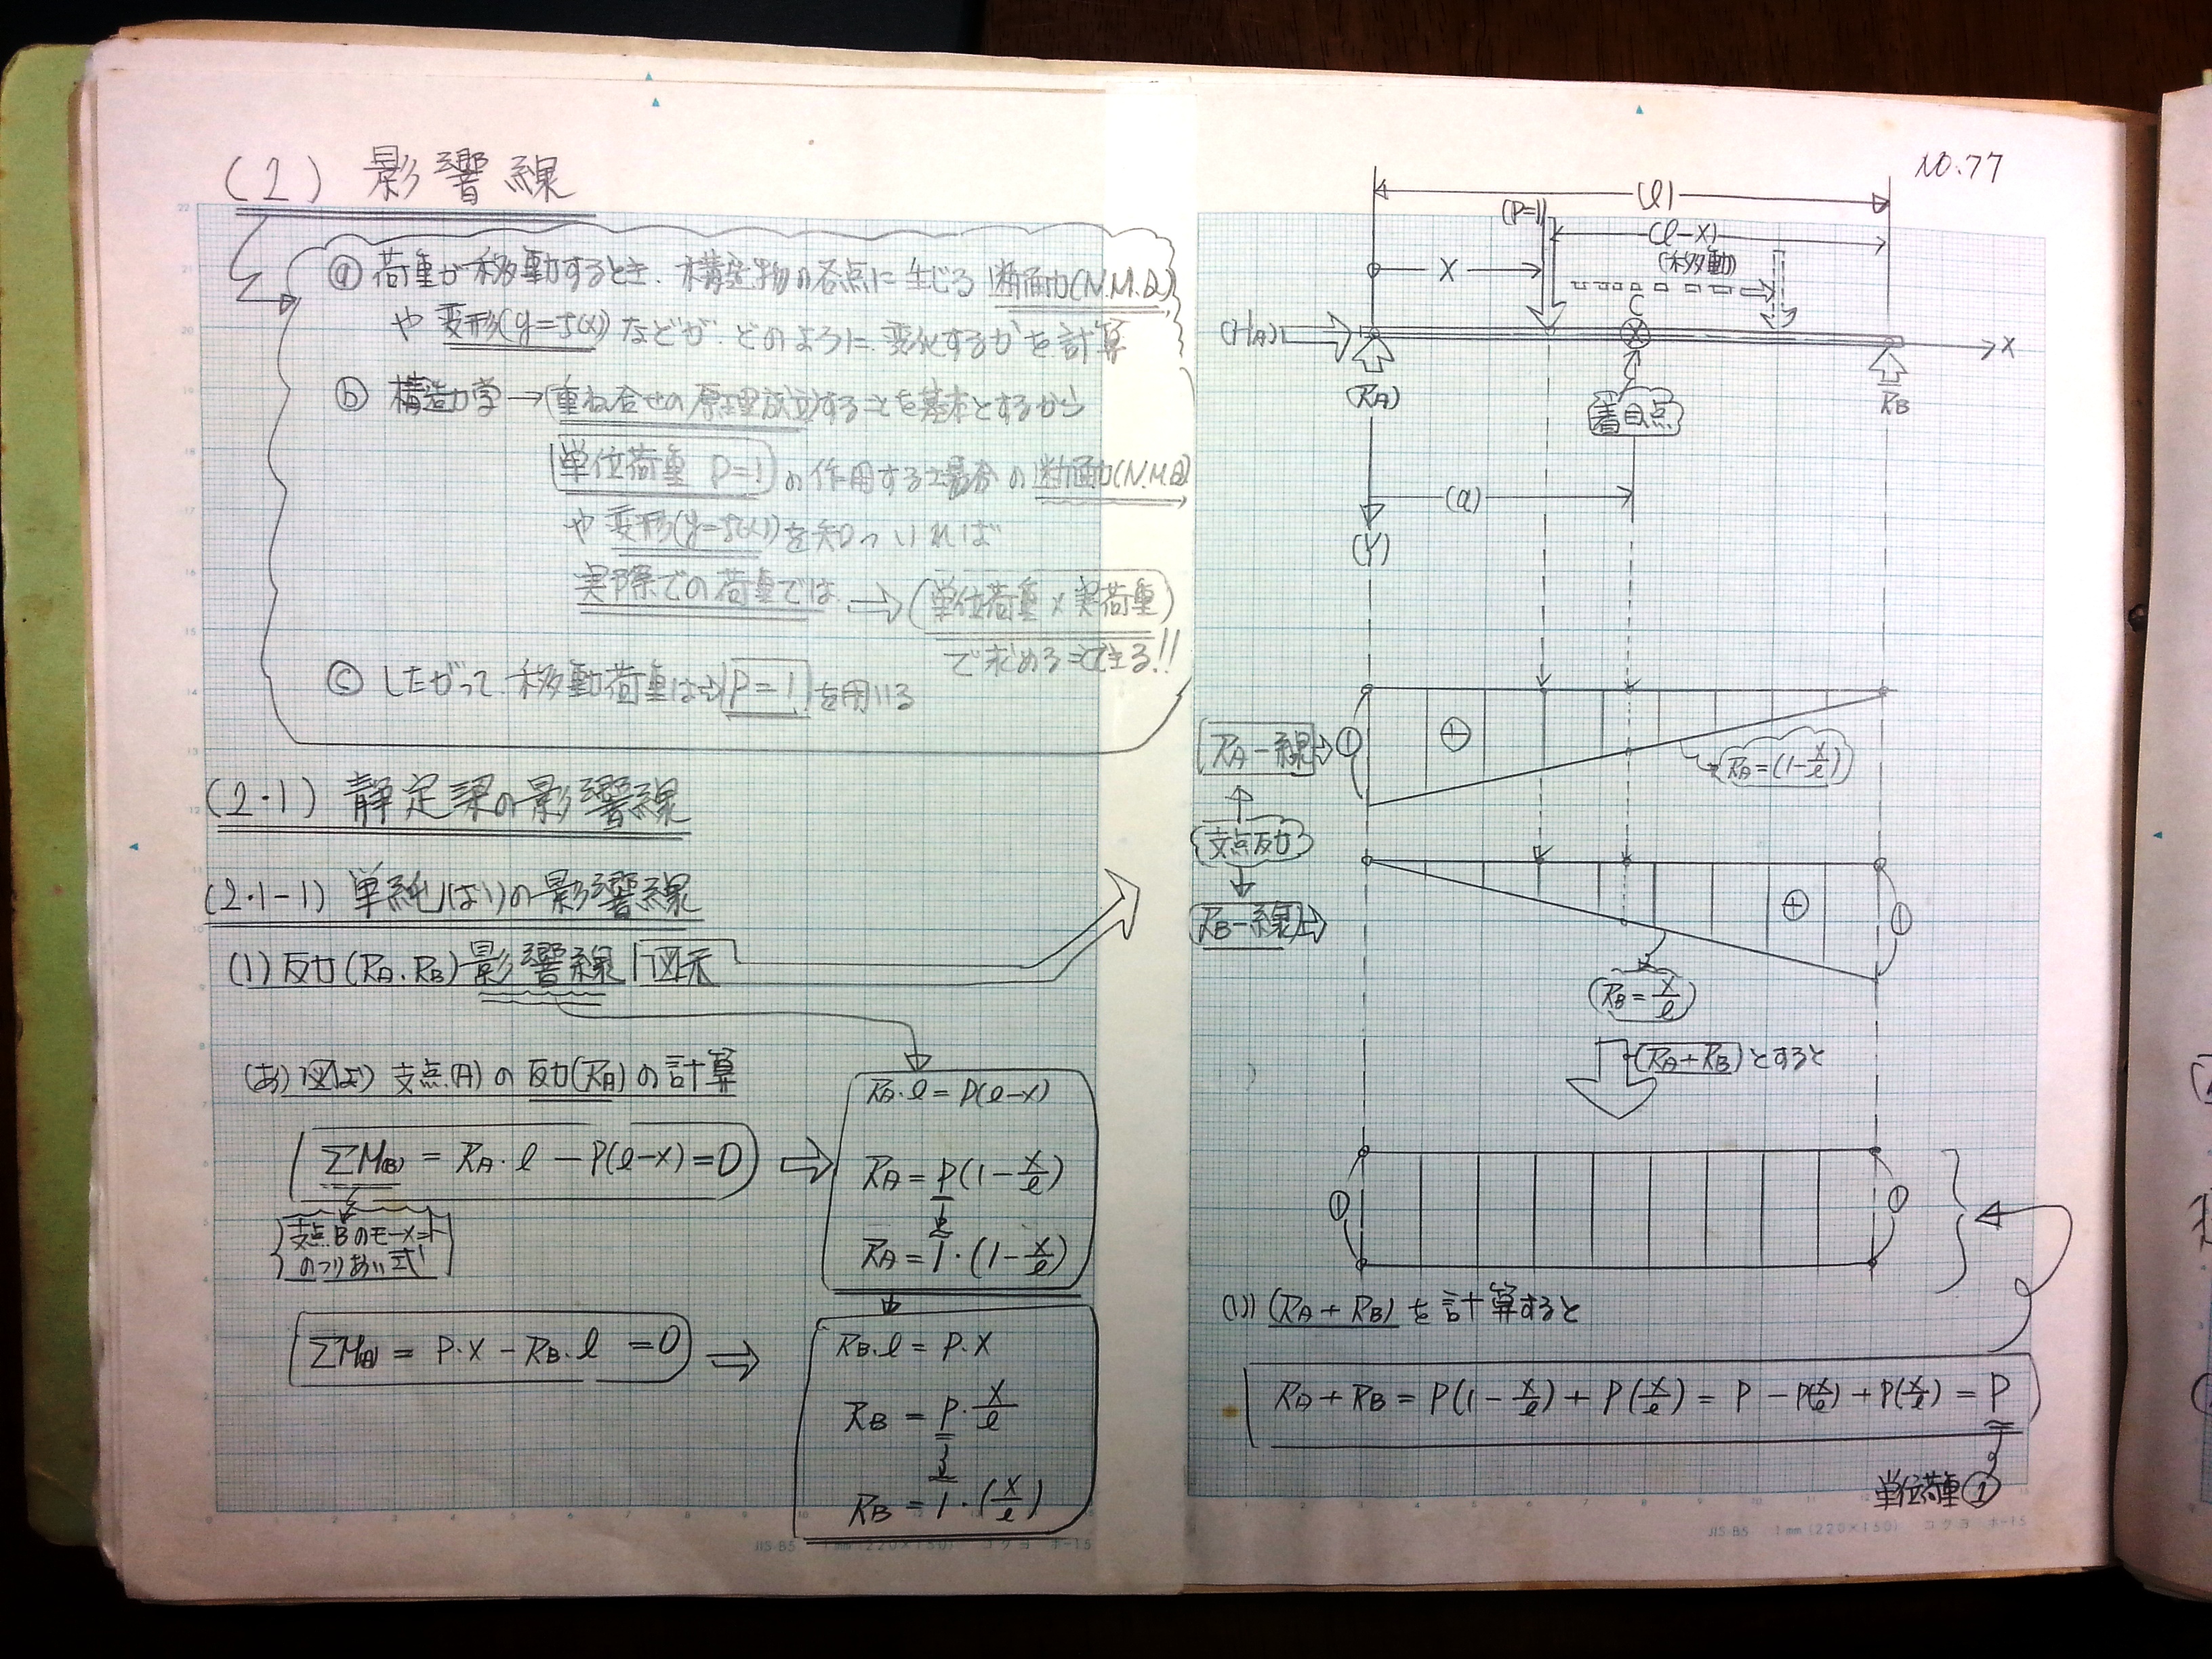 (2) 影響線
ⓐ 荷重が移動するとき、構造物の各点に生じる断面力(N.M.Q)
や変形(y=f(x))などが、どのように変化するかを計算
ⓑ 構造力学→(重ね合せの原理成立)することを基本とするから
単位荷重 P=1 の作用する場合の断面力(N.M.Q)
や変形(y=f(x))を知っいれば
実際での荷重では ⇒ (単位荷重×実荷重)
で求めることできる!!
ⓒ したがって、移動荷重は⇒ P=1 を用いる
(2・1) 静定梁の影響線
(2・1-1) 単純ばりの影響線
(1) 反力(RA.RB)影響線 図示
(あ) 図より 支点(A)の反力(RA)の計算
ΣM(B) = RA・l − P(l−x) = 0
支点Bのモーメント
のつりあい式
RA・l = P(l−x)
RA = P(1−x/l)
RA = 1・(1−x/l)
ΣM(A) = P・x − RB・l = 0
RB・l = P・x
RB = P・x/l
RB = 1・(x/l)
NO.77
(l)
(P=1)
(l−x)
(移動)
x
C
(HA)
X
(RA)
着目点
RB
(a)
(Y)
RA−線
①
⊕
RA=(1−x/l)
支点反力
RB−線
⊕
①
(RB=x/l)
(RA+RB)とすると
①
①
(い) (RA+RB)を計算すると
RA+RB = P(1−x/l) + P(x/l) = P − P(x/l) + P(x/l) = P
単位荷重①
JIS-B5 1mm(220×150) コクヨ ホ-15
JIS-B5 1mm(220×150) コクヨ ホ-15